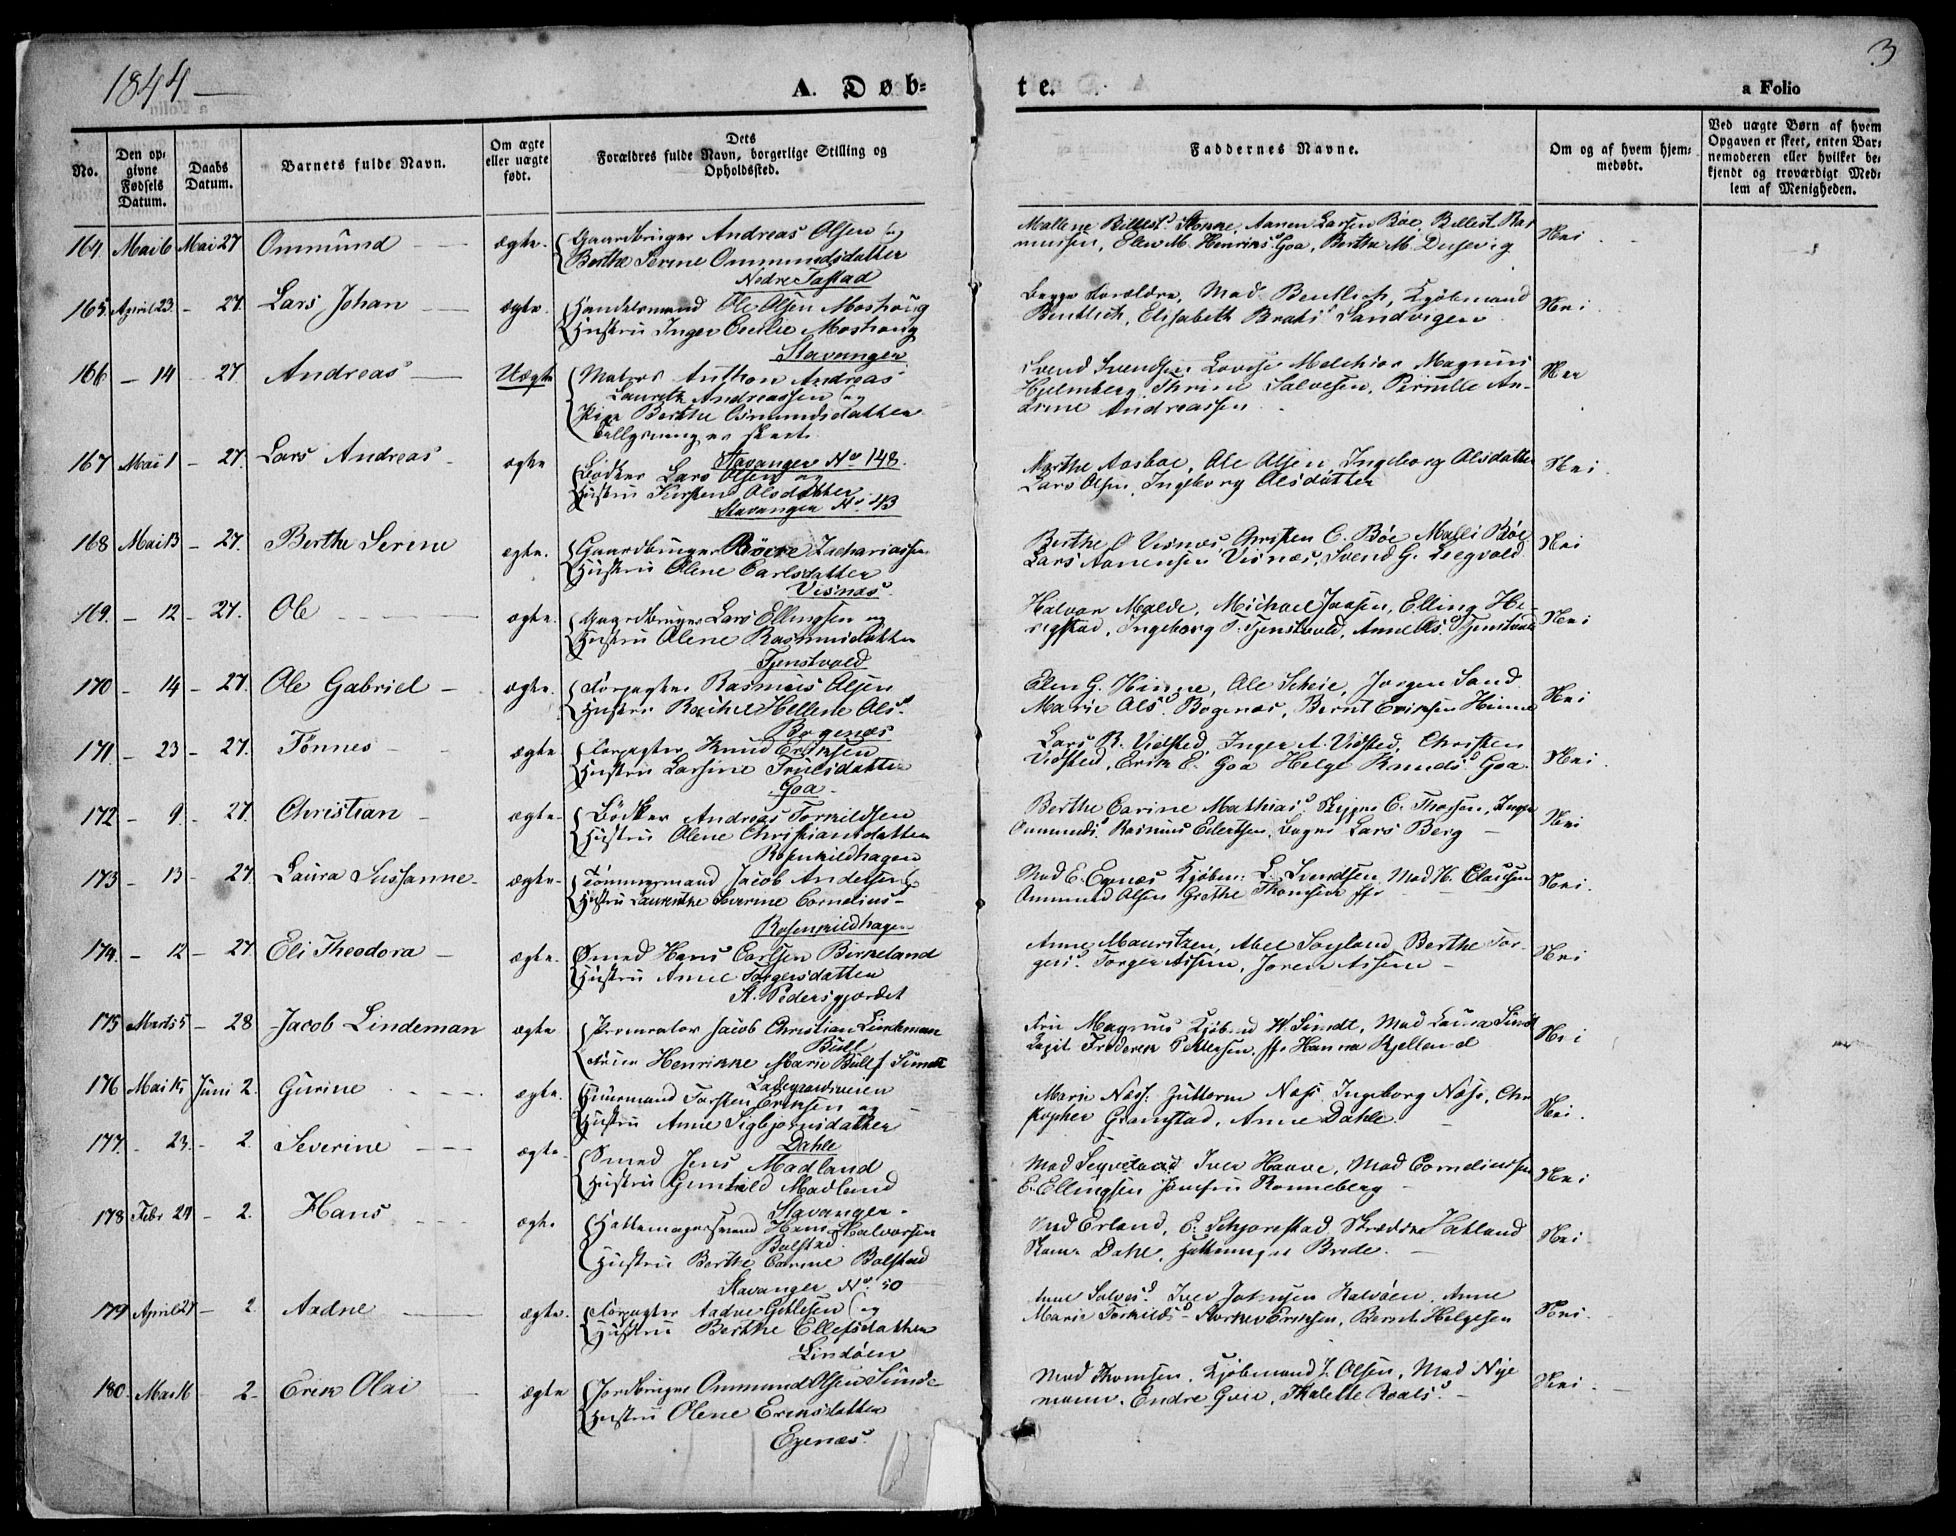 1844
3
A. Døb=
te.
a Folio
No.
Den op=
givne
Fødsels
Datum.
Daabs
Datum.
Barnets fulde Navn.
Om ægte
eller uægte
født.
Dets
Forældres fulde Navn, borgerlige Stilling og
Opholdssted.
Faddernes Navne.
Om og af hvem hjem=
medøbt.
Ved uægte Børn af hvem
Opgaven er skeet, enten Bar=
nemoderen eller hvilket be=
kjendt og troværdigt Med=
lem af Menigheden.
164. Mai 6 Mai 27 Ommund ægte. Gaardbruger Andreas Olsen og
Berthe Serine Ommundsdatter
Nedre Tastad
Nei
165 April 23. - 27. Lars Johan ægte. Handelsmand Ole Olsen Moshoug
Hustru Inger Cecilie Moshoug
Stavanger
Begge Forældre, Mad Bentlich, Kjøbmand
Bentlich, Elisabeth Sandvigen
Nei
166 - 14 - 27. Andreas Uægte Matros Anthon Andreas
Lauritz Andreassen og
Pige Berthe Osmundsdatter
Tillysning er skeet.
Stavanger No 148.
Svend Svendsen Lovise Melchior Magnus
Hjelmberg, Thrine Salvesen, Pernille An-
drine Andreassen
167 Mai 1 - 27. Lars Andreas ægte Bødker Lars Olsen og
Hustru Kirsten Olsdatter
Stavanger No 43
Marthe Aasboe, Ole Olsen, Ingeborg Olsdatter
Lars Olsen, Ingeborg Olsdatter
Nei
168 Mai 13 - 27. Berthe Serine ægte. Gaardbruger Børre Zachariassen
Hustru Olene Carlsdatter
Visnæs.
Berthe O Visnæs Christen C. Bøe Malli Bøe
Lars Aanensen Visnæs, Svend G. Leegvold
Nei
169. - 12 - 27. Ole ægte. Gaardbruger Lars Ellingsen og
Hustru Olene Rasmusdatter
Tjenstvold
Halvor Malde, Michael Jaasen, Elling He-
rigstad, Ingeborg T. Tjenstvold, Anne Tjenstvold
Nei
170 - 14 - 27. Ole Gabriel ægte. Forpagter Rasmus Olsen
Hustru Rachel Hellene Ols.
Bogenæs
Elen G. Hinne, Ole Scheie, Jorgen Sand
Marie Ols. Bogenæs, Bernt Eriksen Hinne
Nei
171 - 23 - 27. Tønnes ægte Forpagter Knud Eriksen
Hustru Larsine Trulsdatter
Goa.
Lars R. Vidsted, Inger A. Vidsted, Christen
Vidsted, Erik E. Goa Helge Knuds. Goa.
Nei
172 - 9. - 27. Christian ægte. Bødker Andreas Torkildsen
Hustru Olene Christiansdatter
Rosenkildhagen
Berthe Carine Mathias. E. Thorsen, Inger
Ommunds. Rasmus Eilertsen, Lars Berg
Nei
173 - 13 - 27. Laura Sussanne ægte. Tømmermand Jacob Andersen
Hustru Laurentze Severine Cornelius-
Rosenkildhagen
Mad E. Egenæs Kjøbm: L. Svendsen, Mad H. Clausen
Ommund Olsen Grethe Thomsen
Nei.
174. - 12 - 27. Eli Theodora ægte. Smed Hans Carlsen Birkeland
Hustru Anne Torgersdatter
St. Pedersgjordet
Anne Mauritzen, Abel Soyland, Berthe Tor-
gers. Torger Assen, Joren Assen
Nei
175 Marts 5 - 28 Jacob Lindeman ægte Procurator Jacob Christian Lindeman
Bull
Fruen Henrikke Marie Bull f Sundt
Ladegaardsveien
Fru Magnus Kjøbmd W. Sundt, Mad Laura Sundt
Frederik Pettersen, fr Hanna Kjelland
Nei
176 Mai 15 Juni 2. Gurine ægte. Huusmand Torsten Eriksen og
Hustru Anne Sigbjørnsdatter
Dahle
Marie Næss. Guttorm Næss Ingeborg Næss, Chr
stopher Gramstad, Anne Dahle.
Nei
177. - 23 - 2. Severine ægte. Smed Jens Madland
Hustru Gunhild Madland
Stavanger.
Mad Iver Haave, Mad Corneliussen
E. Ellingsen Jomfru Ronneberg
Nei
178 Febr 24 - 2. Hans ægte Hattemagersvend Hans Halvorsen
Bolstad
Hustru Berthe Carine Bolstad
Stavanger No. 50
Mad Erland, E. Schjorestad Skrædder Hatland
Dahl, Hattemager Brede.
Nei.
179 April 27 - 2. Aadne ægte. Forpagter Aadne Gitlesen og
Hustru Berthe Ellefsdatter
Lindøen
Anne Salves. Iver Johnsen Kalvøen, Anne
Marie Torkilds. Eriksen, Bernt Helgesen
Nei.
180. Mai 16 - 2. Erik Olai ægte Jordbruger Ommund Olsen Sunde
Hustru Olene Eriksdatter
Egenæs.
Mad Thomsen, Kjøbmand Z. Olsen, Mad Nye
mann. Endre Gvie, Thalette Roals.
Nei.